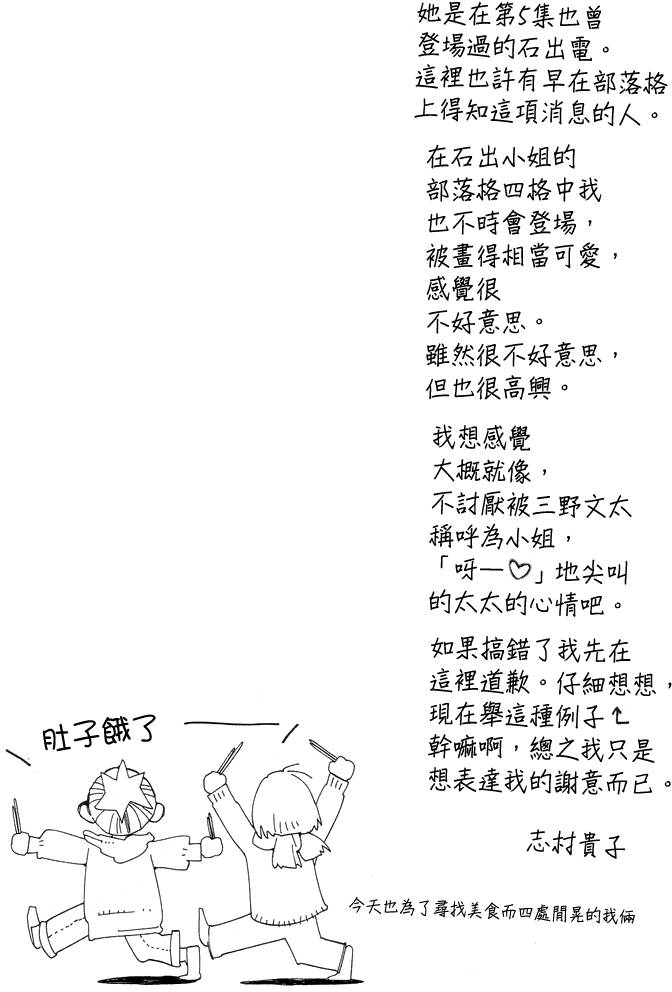 她是在第5集也曾
登場過的石出電。
這裡也許有早在部落格
上得知這項消息的人。
在石出小姐的
部落格四格中我
也不時會登場，
被畫得相當可愛，
感覺很
不好意思。
雖然很不好意思，
但也很高興。
我想感覺
大概就像，
不討厭被三野文太
稱呼為小姐，
「呀—♡」地尖叫
的太太的心情吧。
如果搞錯了我先在
這裡道歉。仔細想想，
現在舉這種例子↑
幹嘛啊，總之我只是
想表達我的謝意而已。
志村貴子
肚子餓了
今天也為了尋找美食而四處閒晃的我倆